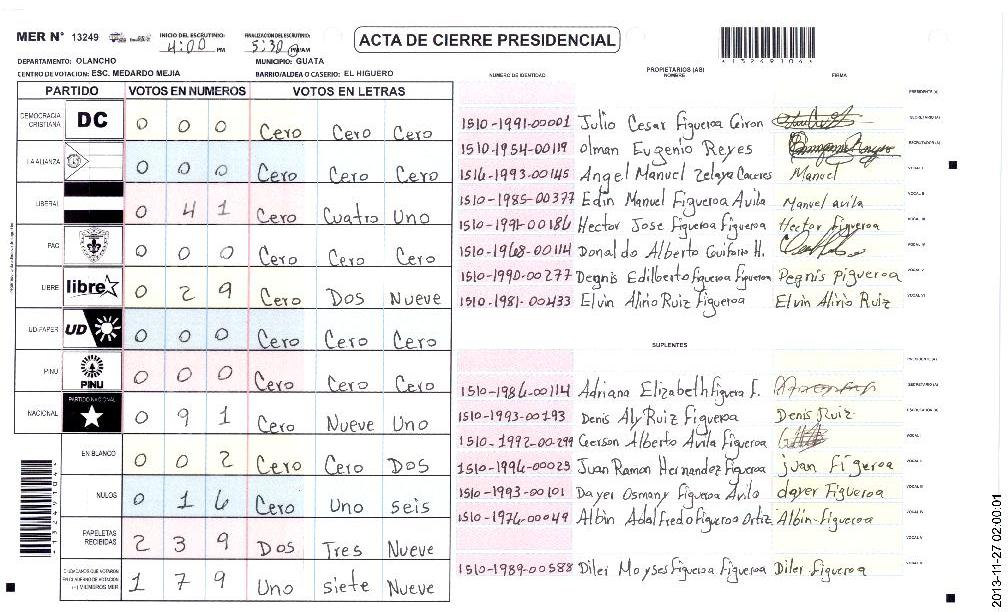 MER N° 13249 INICIO DEL ESCRUTINIO: 4:00 PM FINALIZACION DEL ESCRUTINIO: 5:30 PM/AM ACTA DE CIERRE PRESIDENCIAL
DEPARTAMENTO: OLANCHO MUNICIPIO: GUATA
CENTRO DE VOTACION: ESC. MEDARDO MEJIA BARRIO/ALDEA O CASERIO: EL HIGUERO
PARTIDO VOTOS EN NUMEROS VOTOS EN LETRAS
DEMOCRACIA CRISTIANA DC 0 0 0 Cero Cero Cero
LA ALIANZA 0 0 0 Cero Cero Cero
LIBERAL 0 41 Cero Cuatro Uno
PAC 0 0 0 Cero Cero Cero
LIBRE libre 0 2 9 Cero Dos Nueve
UD-FAPER UD 0 0 0 Cero Cero Cero
PINU PINU 0 0 0 Cero Cero Cero
NACIONAL PARTIDO NACIONAL 0 9 1 Cero Nueve Uno
EN BLANCO 0 0 2 Cero Cero Dos
NULOS 0 1 6 Cero Uno seis
PAPELETAS RECIBIDAS 2 3 9 Dos Tres Nueve
CIUDADANOS QUE VOTARON EN CUADERNO DE VOTACION (+) MIEMBROS MER 1 7 9 Uno siete Nueve
PROPIETARIOS (AS)
NUMERO DE IDENTIDAD NOMBRE FIRMA
PRESIDENTE (A)
1510-1991-00001 Julio Cesar Figueroa Giron SECRETARIO (A)
1510-1954-00119 Olman Eugenio Reyes ESCRUTADOR (A)
1516-1993-00145 Angel Manuel Zelaya Caceres Manuel VOCAL I
1510-1985-00377 Edin Manuel Figueroa Avila Manuel avila VOCAL II
1510-1991-00186 Hector Jose Figueroa Figueroa Hector Figueroa VOCAL III
1510-1968-00114 Donaldo Alberto H. VOCAL IV
1510-1990-00277 Degnis Edilberto Figueroa Figueroa Degnis Figueroa VOCAL V
1510-1981-00433 Elvin Alirio Ruiz Figueroa Elvin Alirio Ruiz VOCAL VI
SUPLENTES
PRESIDENTE (A)
1510-1986-00114 Adriana Elizabeth Figueroa F. SECRETARIO (A)
1510-1993-00193 Denis Aly Ruiz Figueroa Denis Ruiz ESCRUTADOR (A)
1510-1992-00299 Gerson Alberto Avila Figueroa VOCAL I
1510-1996-00023 Juan Ramon Hernandez Figueroa juan Figeroa VOCAL II
1510-1993-00101 Dayer Osmany Figueroa Avila dayer Figueroa VOCAL III
1510-1976-00049 Albin Adalfredo Figueroa Ortiz Albin Figueroa VOCAL IV
VOCAL V
1510-1989-00588 Diler Moyses Figueroa Figueroa Diler figueroa VOCAL VI
2013-11-27 02:00:01